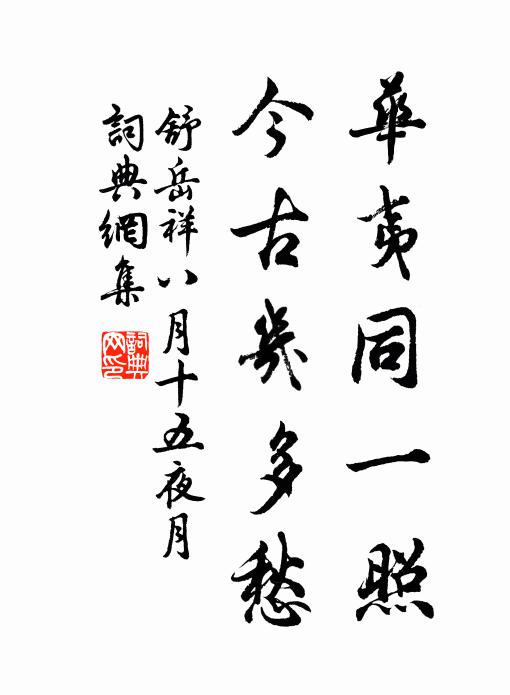 華夷同一照
今古幾多愁
舒岳祥八月十五夜月
詞典網集
詞典网印